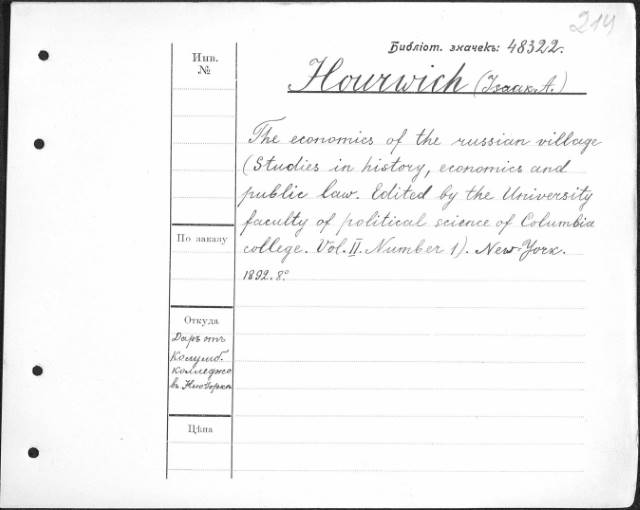 214
Библіот. значекъ: 48322.
Инв.
№
Hourwich (Isaak. A.)
The economics of the russian village
(Studies in history, economics and
public law. Edited by the University
faculty of political science of Columbia
college. Vol. II. Number 1). New-York.
1892. 8°
По заказу
Откуда
Даръ отъ
Колумб.
колледжа
въ Нью Іорке
Цѣна